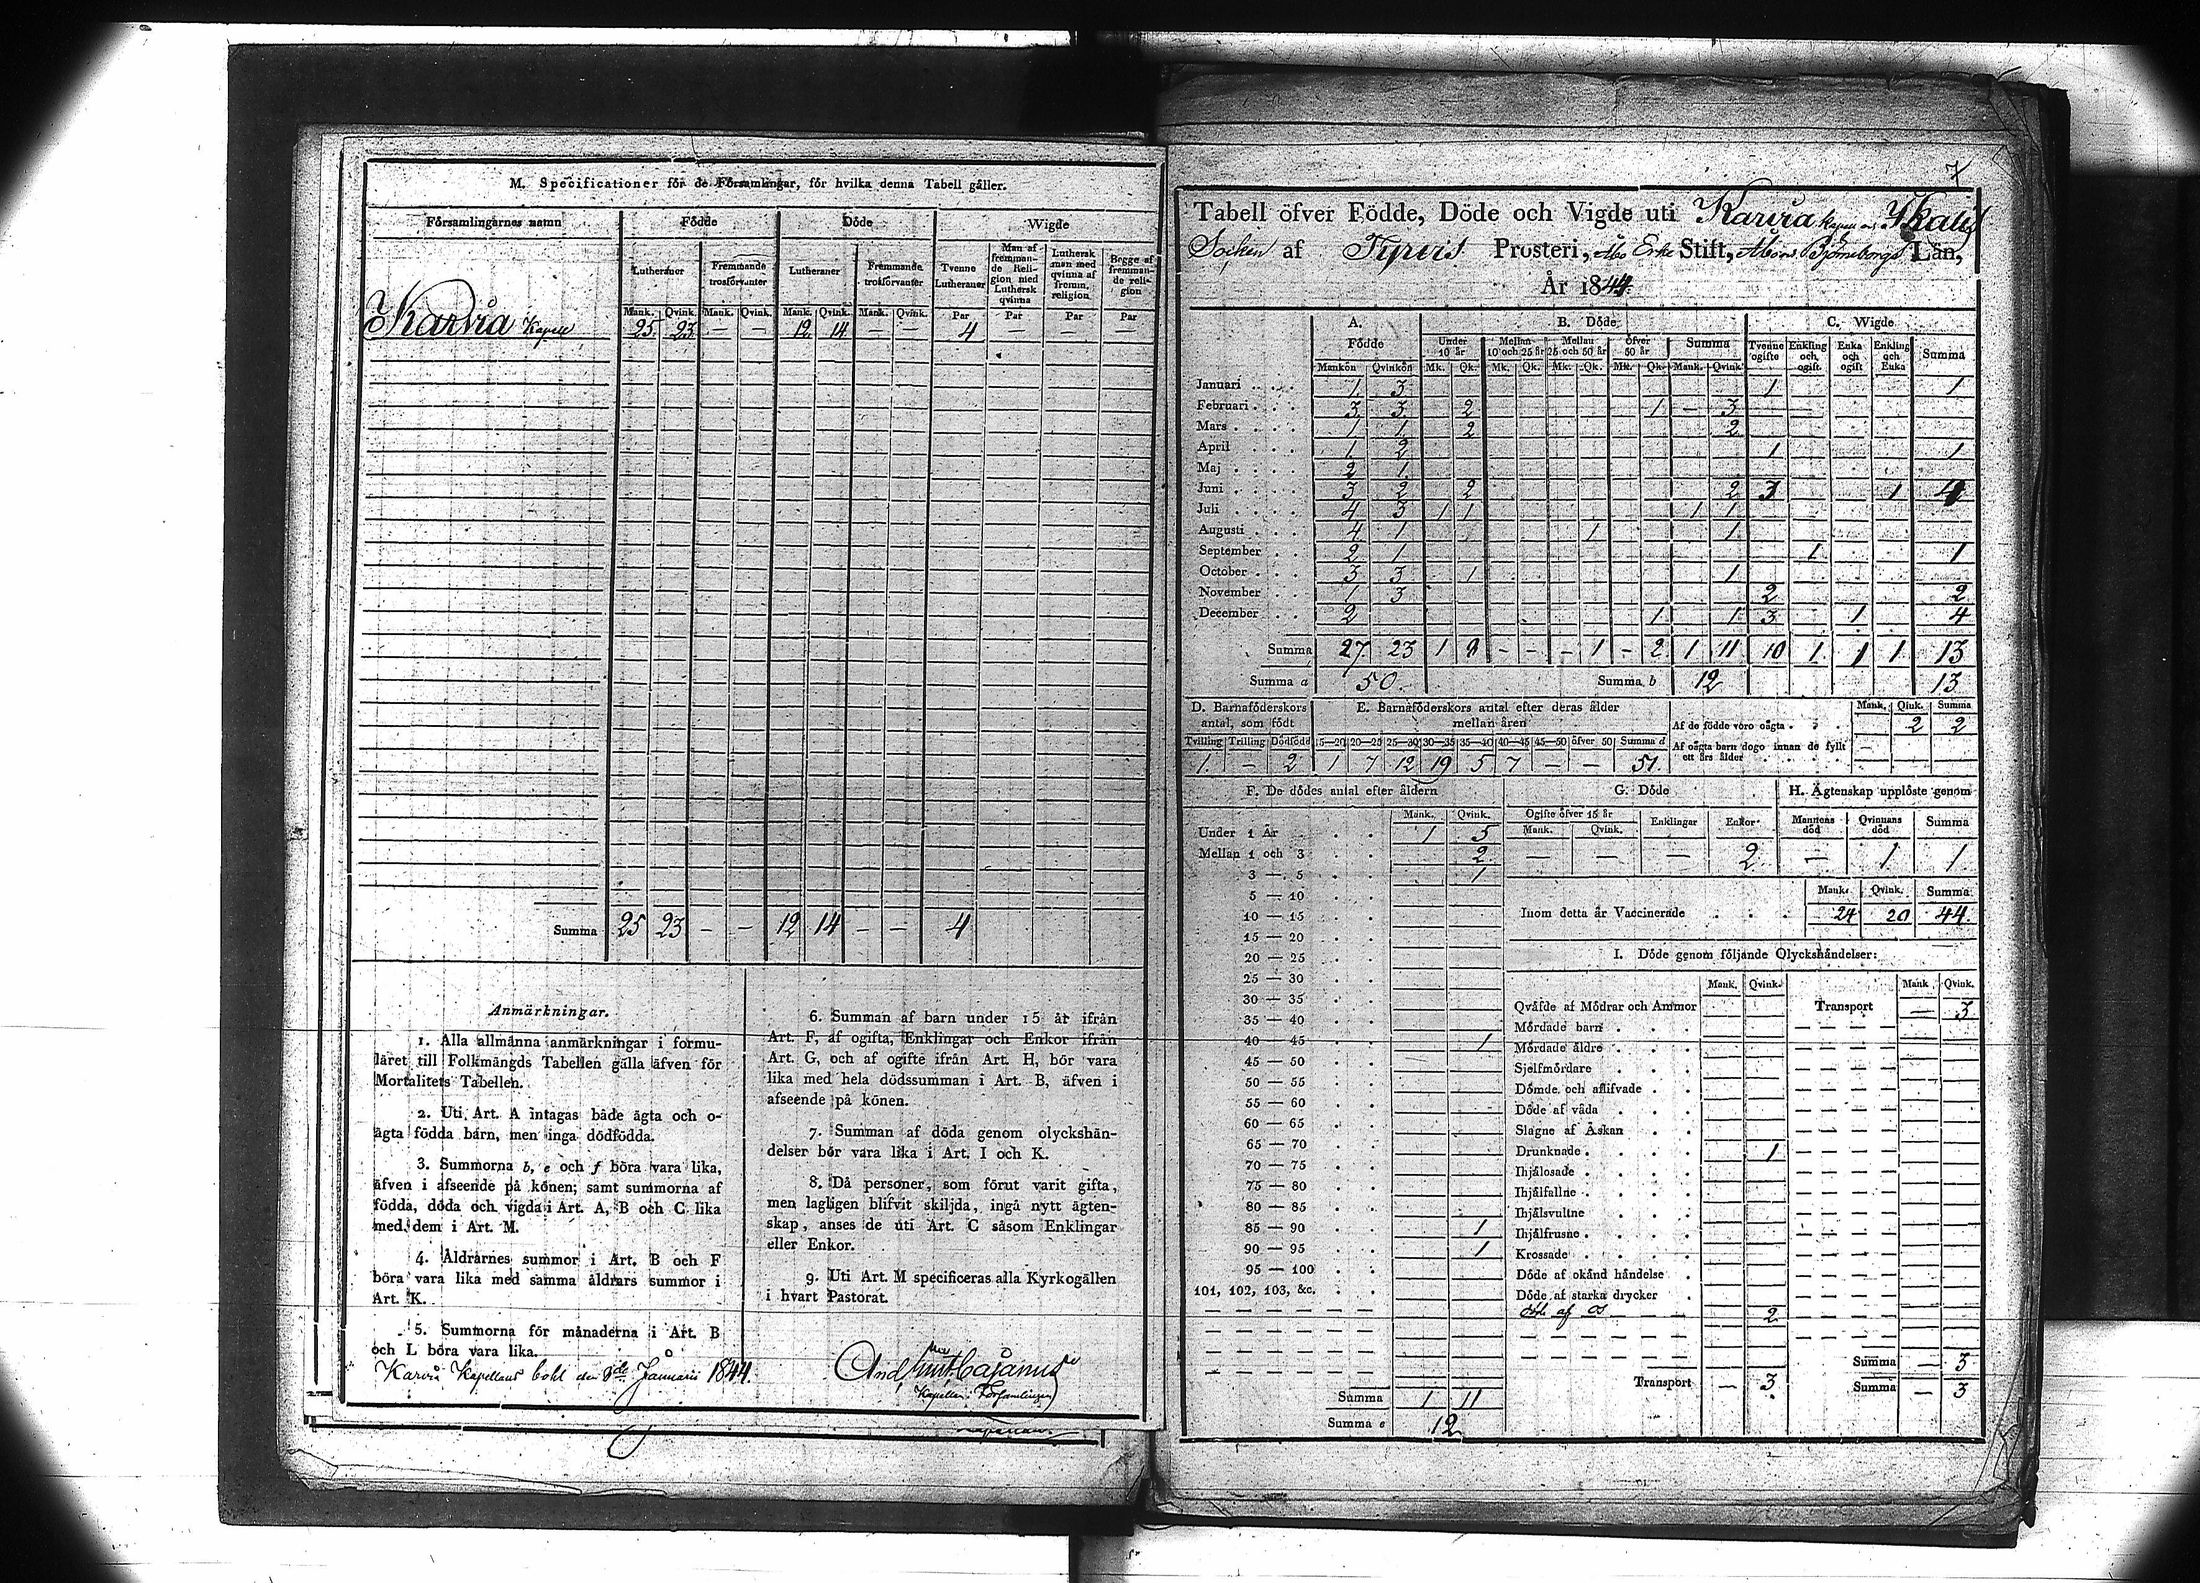 M. Specificationer för de Församlingar, för hvilka denna Tabell gäller.
Församlingarnes namn Födde Döde Wigde
Lutheraner Fremmande trosförvanter Lutheraner Fremmande trosförvanter Tvenne Lutheraner Man af fremmande Religion med Luthersk qvinna Luthersk man med qvinna af fremm. religion. Begge af fremmande religion
Mank. Qvink. Mank. Qvink. Mank. Qvink. Mank. Qvink. Par Par Par Par
Karvia Kapell 25 23 — — 12 14 — — 4 — — —
Summa 25 23 — — 12 14 — — 4
Anmärkningar.
1. Alla allmänna anmärkningar i formu-
läret till Folkmängds Tabellen gälla äfven för
Mortalitets Tabellen.
2. Uti Art. A intagas både ägta och o-
ägta födda barn, men inga dödfödda.
3. Summorna b, e och f böra vara lika,
äfven i afseende på könen; samt summorna af
födda, döda och vigda i Art. A, B och C lika
med dem i Art. M.
4. Åldrarnes summor i Art. B och F
böra vara lika med samma åldrars summor i
Art. K.
5. Summorna för månaderna i Art. B
och L böra vara lika.
6. Summan af barn under 15 år ifrån
Art. F, af ogifta, Enklingar och Enkor ifrån
Art. G, och af ogifte ifrån Art. H, bör vara
lika med hela dödssumman i Art. B, äfven i
afseende på könen.
7. Summan af döda genom olyckshän-
delser bör vara lika i Art. I och K.
8. Då personer, som förut varit gifta,
men lagligen blifvit skiljda, ingå nytt ägten-
skap, anses de uti Art. C såsom Enklingar
eller Enkor.
9. Uti Art. M specificeras alla Kyrkogällen
i hvart Pastorat.
Karvia Kapellans bohl den 8de Januarii 1844.
Cajanus
7
Tabell öfver Födde, Döde och Vigde uti Karvia
Socken af Tyrvis Prosteri, Åbo Erke Stift, Åbo Björneborgs Län,
År 1844.
A. Födde B. Döde C. Wigde
Under 10 år Mellan 10 och 25 år Mellan 25 och 50 år öfver 50 år Summa Tvenne ogifte Enkling och ogift Enka och ogift Enkling och Enka Summa
Mankön Qvinkön Mk. Qk. Mk. Qk. Mk. Qk. Mk. Qk. Mank. Qvink.
Januari 1 3 1 1
Februari 3 3 2 1 — 3
Mars 1 1 2 2
April 1 2 1 1
Maj 2 1
Juni 3 2 2 2 3 1 4
Juli 4 3 1 1 1 1
Augusti 4 1 1 1
September 2 1 1 1
October 3 3 1 1
November 1 3 2 2
December 2 1 1 3 1 4
Summa 27 23 1 8 — — — 1 — 2 1 11 10 1 1 1 13
Summa a 50 Summa b 12 13
D. Barnaföderskors antal, som födt
E. Barnaföderskors antal efter deras ålder mellan åren
Tvilling Trilling Dödfödt 15—20 20—25 25—30 30—35 35—40 40—45 45—50 öfver 50 Summa d
1 — 2 1 7 12 19 5 7 — — 51
Mank. Qink. Summa
Af de födde voro oägta 2 2
Af oägta barn dogo innan de fyllt
ett års ålder —
F. De dödes antal efter åldern
Mank. Qvink.
Under 1 År 1 5
Mellan 1 och 3 2
3 — 5 1
5 — 10
10 — 15
15 — 20
20 — 25
25 — 30
30 — 35
35 — 40
40 — 45 1
45 — 50
50 — 55
55 — 60
60 — 65
65 — 70
70 — 75
75 — 80
80 — 85
85 — 90 1
90 — 95 1
95 — 100
101, 102, 103, &c.
Summa 1 11
Summa e 12
G. Döde
Ogifte öfver 15 år Enklingar Enkor
Mank. Qvink.
— — — 2
H. Ägtenskap upplöste genom
Mannens död Qvinnans död Summa
— 1 1
Mank. Qvink. Summa
Inom detta år Vaccinerade 24 20 44
I. Döde genom följande Olyckshändelser:
Mank. Qvink. Mank. Qvink.
Qväfde af Mödrar och Ammor Transport — 3
Mördade barn
Mördade äldre
Sjelfmördare
Dömde och aflifvade
Döde af våda
Slagne af Åskan
Drunknade 1
Ihjälosade
Ihjälfallne
Ihjälsvultne
Ihjälfrusne
Krossade
Döde af okänd händelse
Döde af starka drycker
Död af os 2
Summa — 3
Transport — 3 Summa — 3